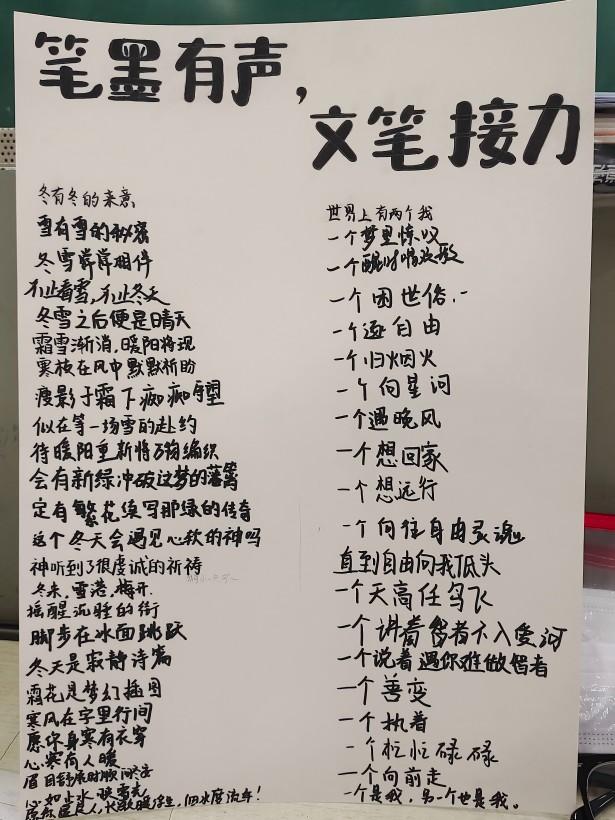 笔墨有声，
文笔接力
冬有冬的来意
雪有雪的秘密
冬雪常常相伴
不止看雪，不止冬天
冬雪之后便是晴天
霜雪渐消，暖阳将现
寒枝在风中默默祈盼
瘦影于霜下痴痴守望
似在等一场雪的赴约
待暖阳重新将万物编织
会有新绿冲破这梦的藩篱
定有繁花续写那绿的传奇
这个冬天会遇见心软的神吗
神听到了很虔诚的祈祷
冬来，雪落，梅开
摇醒沉睡的街
脚步在冰面跳跃
冬天是寂静诗篇
霜花是梦幻插图
寒风在字里行间
愿你身寒有衣穿
心寒有人暖
眉目舒展时顺问冬安
心如止水
世界上有两个我
一个梦里惊叹
一个醒时
一个困世俗
一个逐自由
一个归烟火
一个向星河
一个遇晚风
一个想回家
一个想远行
一个向往自由灵魂
直到自由向我低头
一个天高任鸟飞
一个讲着智者不入爱河
一个说着遇你难做智者
一个善变
一个执着
一个忙忙碌碌
一个向前走
一个是我，另一个也是我。